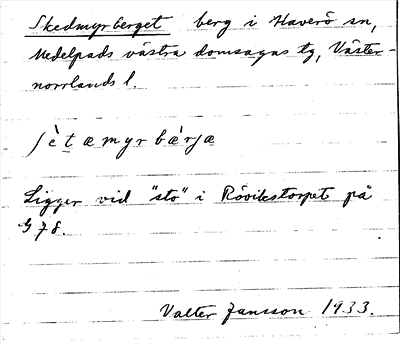 Skedmyrberget berg i Haverö sn,
Medelpads västra domsagas tg, Väster-
norrlands l.
ʃètæmyrbæ̀rjæ
Ligger vid "sto" i Rövikstorpet på
G 78.
Valter Jansson 1933.